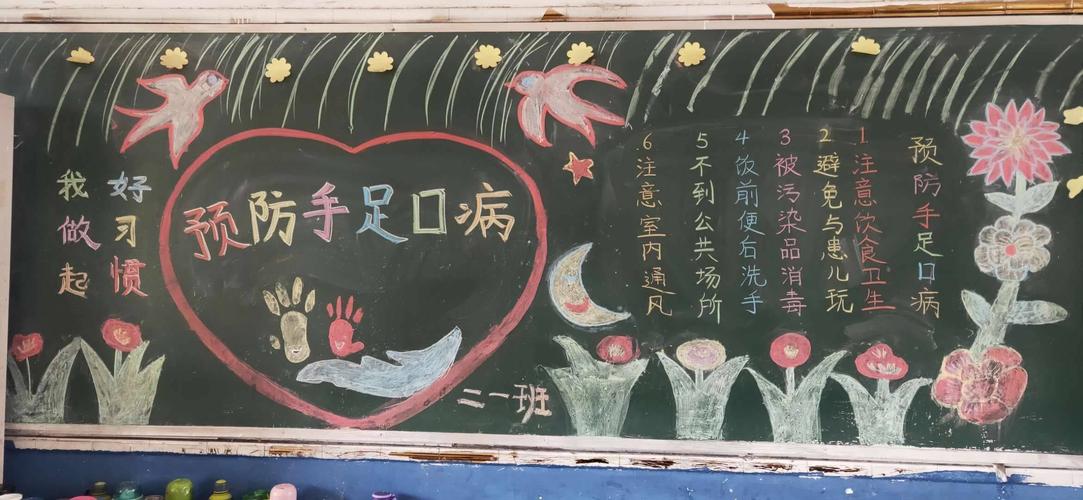 好习惯
我做起
预防手足口病
二一班
预防手足口病
1注意饮食卫生
2避免与患儿玩
3被污染品消毒
4饭前便后洗手
5不到公共场所
6注意室内通风